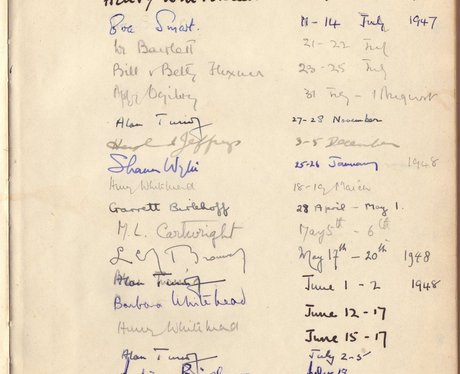 Henry Whitehead
Eva Smart. 11-14 July 1947
W Bartlett 21-22 July
Bill & Betty Flexner 23-25 July
Ogilvy 31 July - 1 August
Alan Turing 27-28 November
Harold Jeffreys 3-5 December
Shaun Wylie 25-26 January 1948
Henry Whitehead 18-19 March
Garrett Birkhoff 28 April - May 1.
M. L. Cartwright May 5th - 6th
May 17th - 20th 1948
Alan Turing June 1 - 2 1948
Barbara Whitehead June 12-17
Henry Whitehead June 15-17
Alan Turing July 2-5